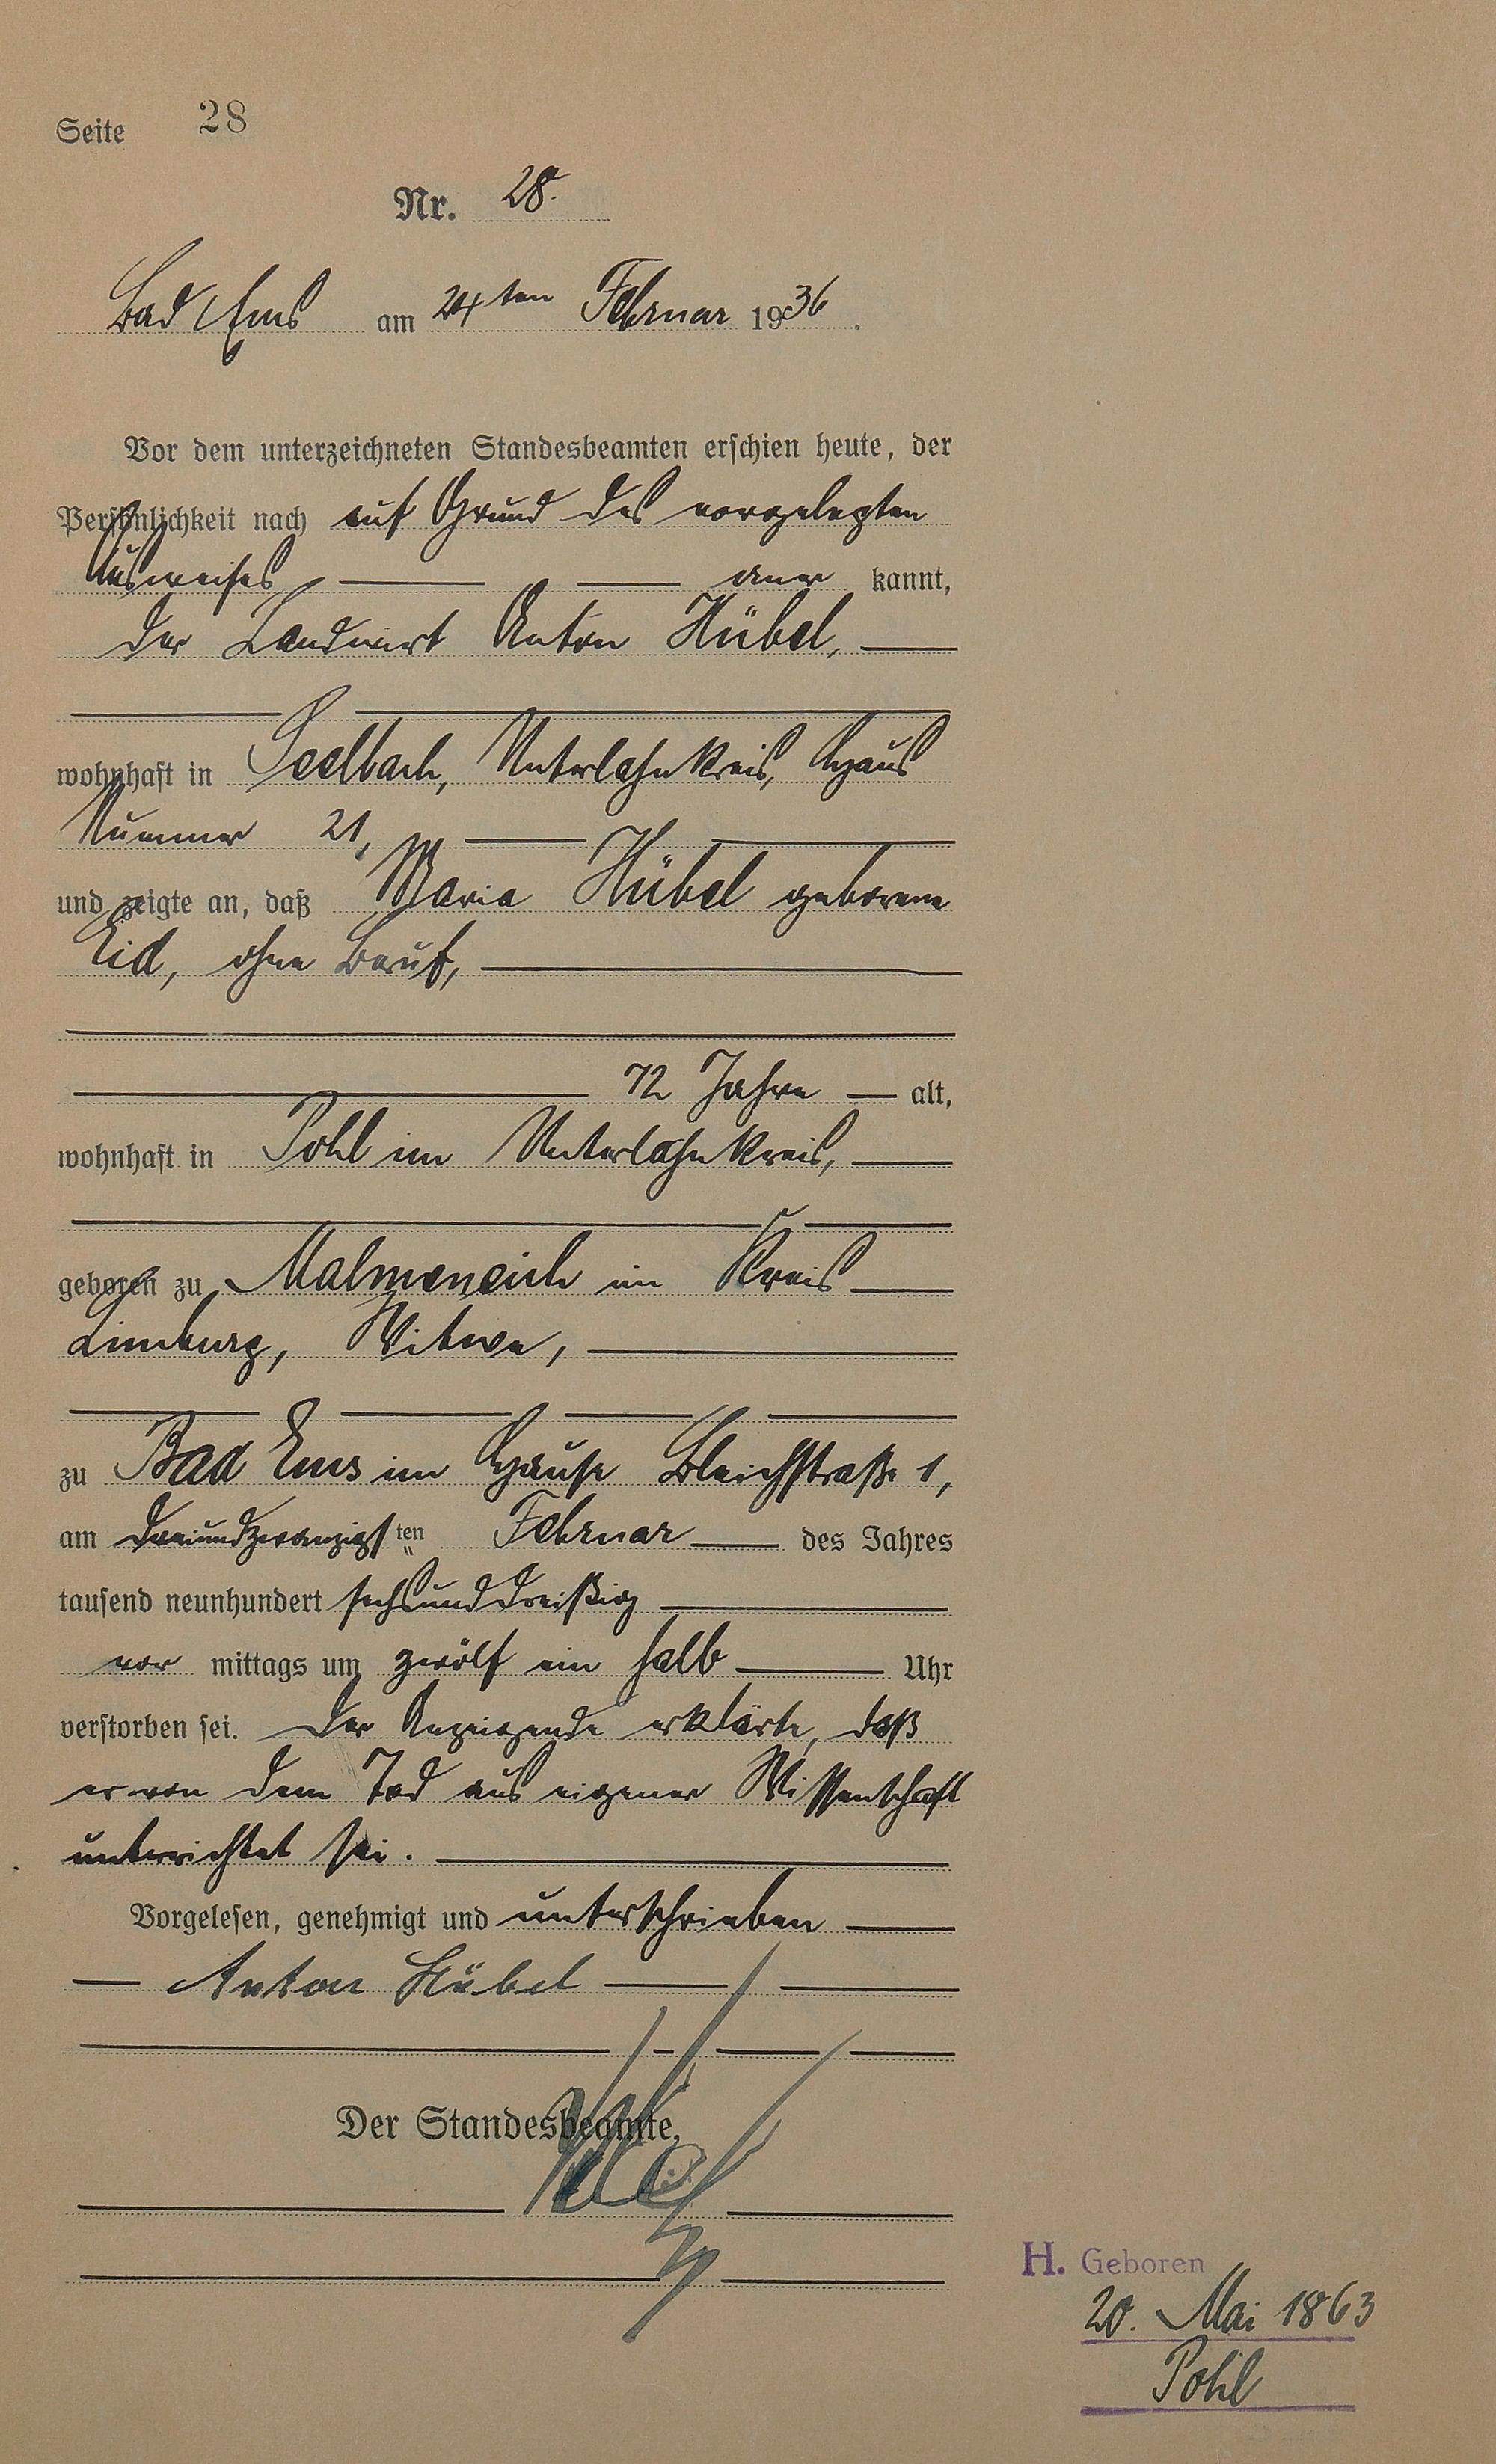 Seite 28
Nr. 28.
Bad Ems am 24ten Februar 1936.
Vor dem unterzeichneten Standesbeamten erschien heute, der
Persönlichkeit nach auf Grund des vorgelegten
Ausweises, — — aner kannt,
der Landwirt Anton Hübel, —
wohnhaft in Seelbach, Unterlahnkreis, Haus
Nummer 21, — —
und zeigte an, daß Maria Hübel geborene
Eid, ohne Beruf, —
— 72 Jahre — alt,
wohnhaft in Pohl im Unterlahnkreis, —
geboren zu Malmeneich im Kreis —
Limburg, Witwe, —
zu Bad Ems im Hause Bleichstraße 1,
am dreiundzwanzigsten Februar — des Jahres
tausend neunhundert sechsunddreißig —
vor mittags um zwölf ein halb — Uhr
verstorben sei. Der Anzeigende erklärte, daß
er von dem Tod aus eigener Wissenschaft
unterrichtet sei. —
Vorgelesen, genehmigt und unterschrieben —
— Anton Hübel — —
Der Standesbeamte.
H. Geboren
20. Mai 1863
Pohl